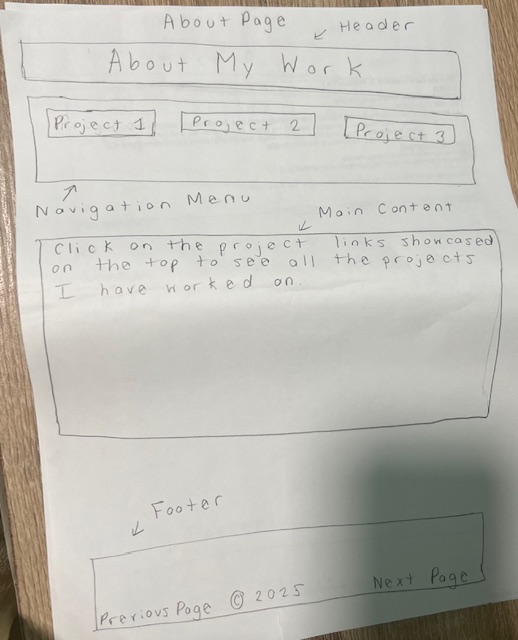 About Page
Header
About My Work
Project 1 Project 2 Project 3
Navigation Menu
Main Content
Click on the project links showcased
on the top to see all the projects
I have worked on.
Footer
Previous Page © 2025 Next Page